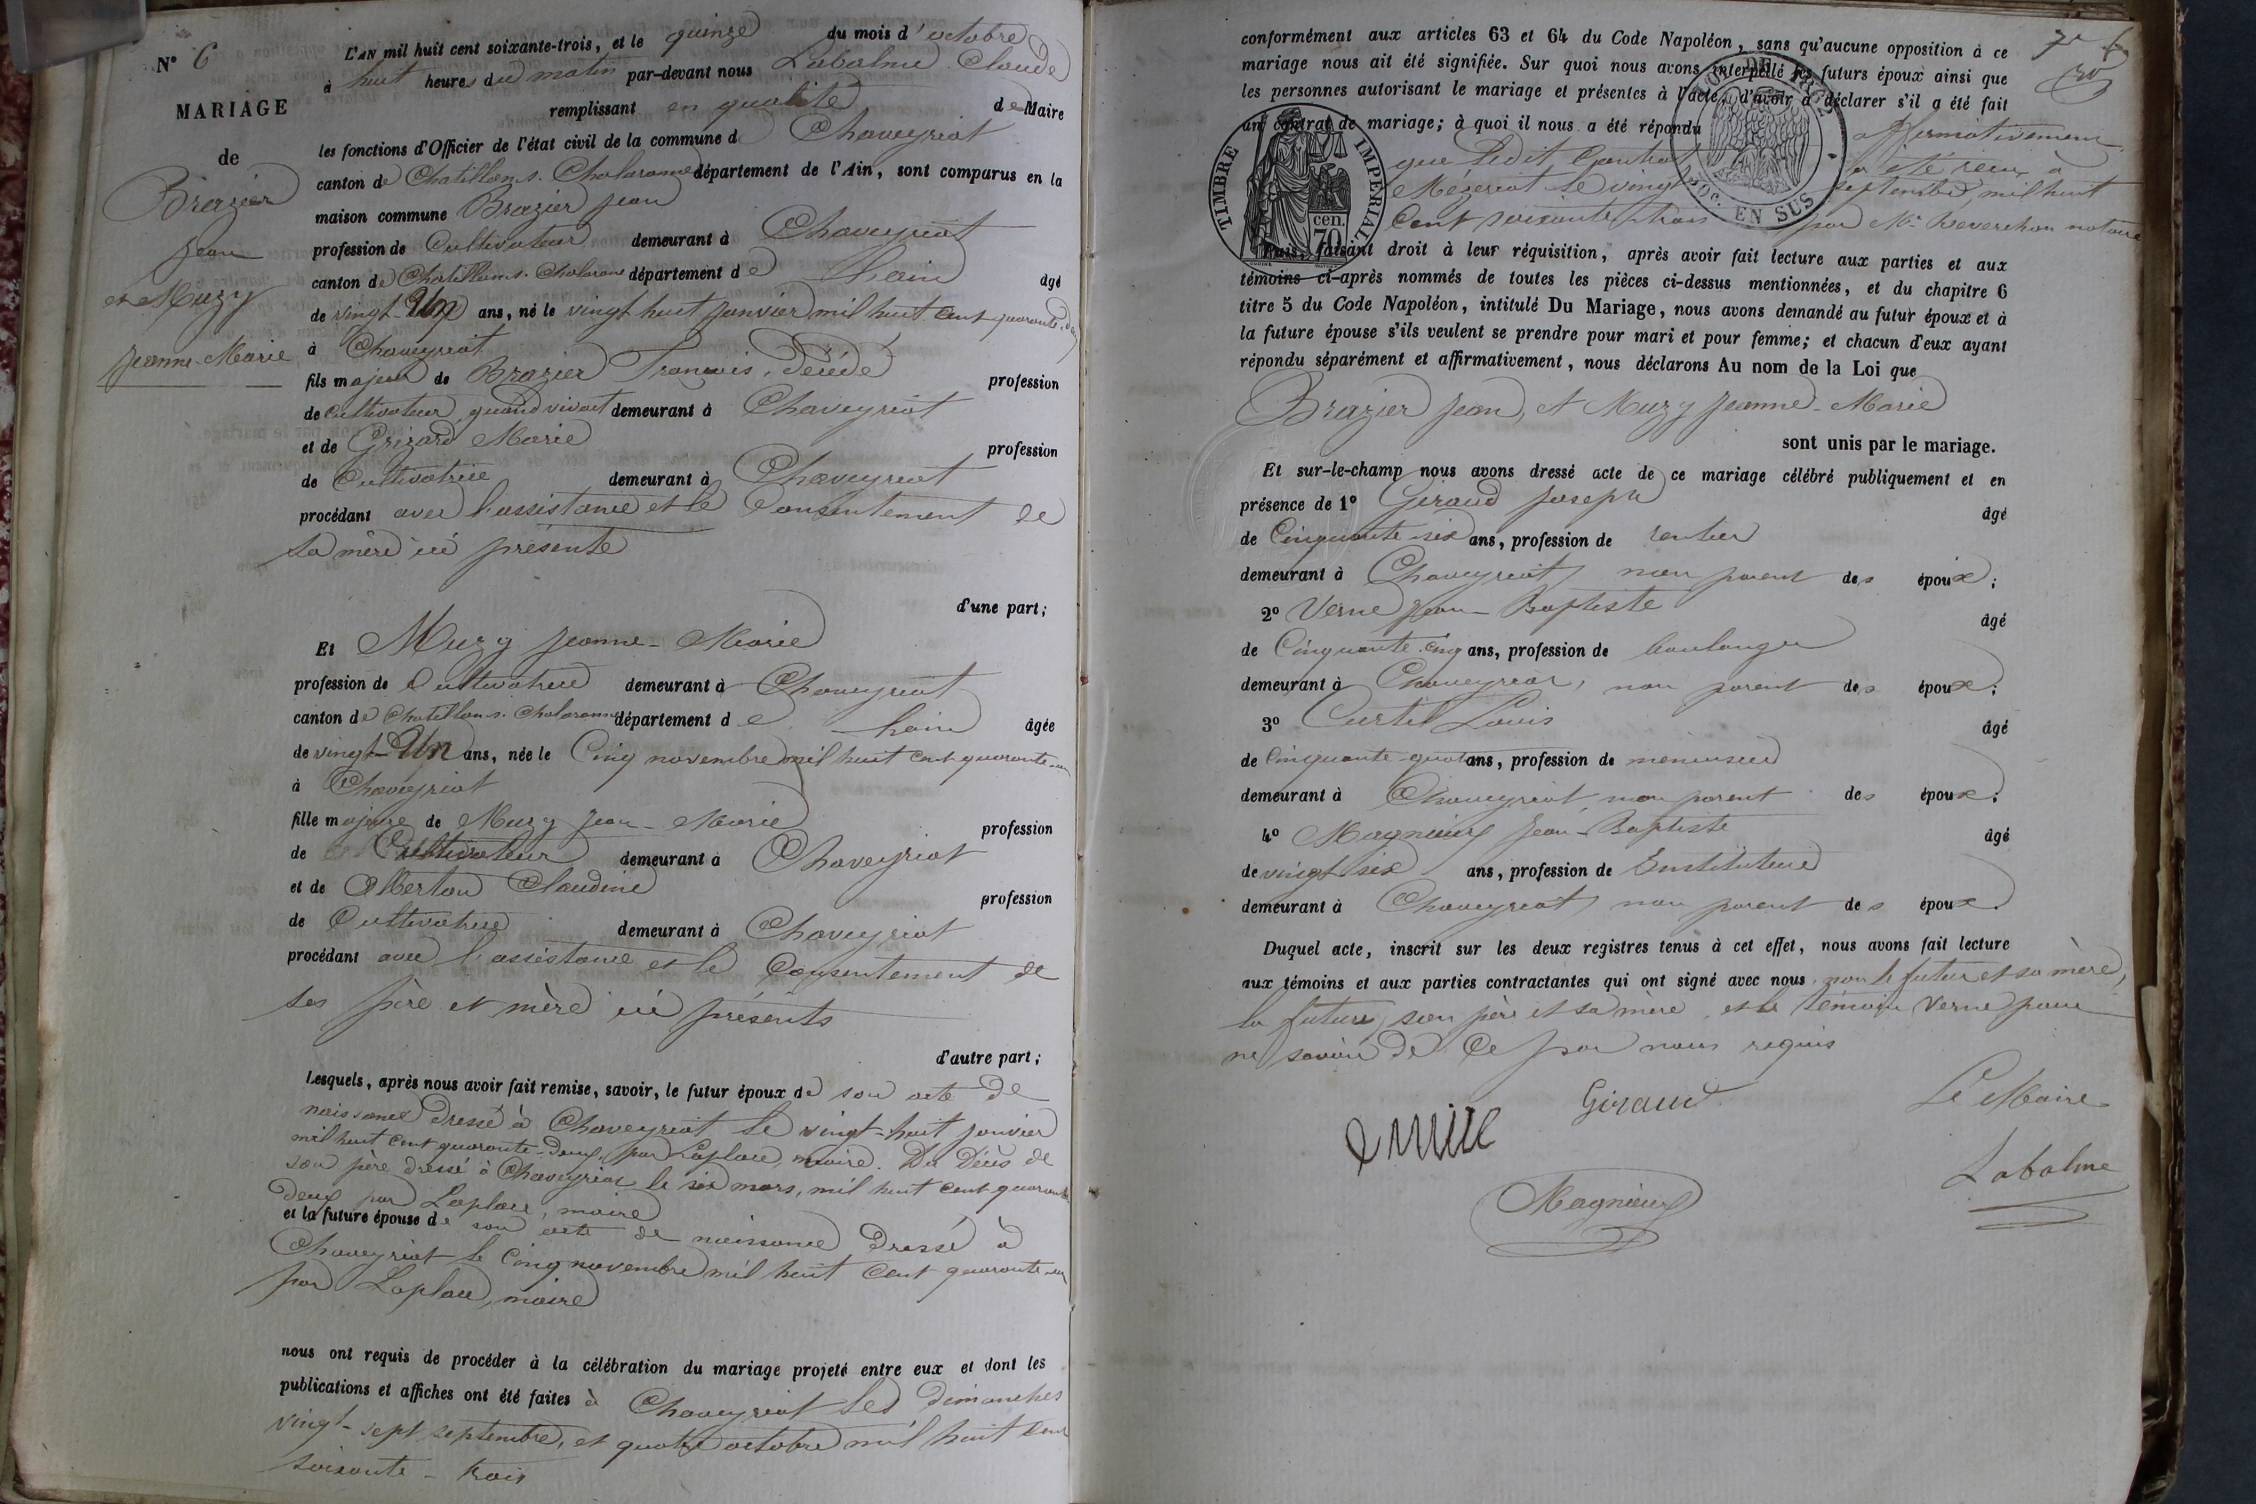 N° 6
MARIAGE
de
Brazier
Jean
et Muzy
Jeanne-Marie
L'AN mil huit cent soixante-trois, et le quinze du mois d'octobre
à huit heures du matin par-devant nous Labalme Claude
remplissant en qualité de Maire
les fonctions d'Officier de l'état civil de la commune d Chaveyriat
canton de Chatillon s. Chalaronne département de l'Ain, sont comparus en la
maison commune Brazier Jean
profession de Cultivateur demeurant à Chaveyriat
canton de Chatillon s. Chalaronne département de l'ain âgé
de vingt-Un ans, né le vingt huit janvier mil huit cent quarante-deux
à Chaveyriat
fils majeur de Brazier François, Décédé profession
de cultivateur quand vivait demeurant à Chaveyriat
et de Grizard Marie profession
de Cultivatrice demeurant à Chaveyriat
procédant avec l'assistance et le Consentement de
sa mère ici présente
d'une part;
Et Muzy Jeanne-Marie
profession de Cultivatrice demeurant à Chaveyriat
canton de Chatillon s. Chalaronne département de l'ain âgée
de vingt-Un ans, née le Cinq novembre mil huit cent quarante-un
à Chaveyriat
fille majeure de Muzy Jean-Marie profession
de Cultivateur demeurant à Chaveyriat
et de Alberton Claudine profession
de Cultivatrice demeurant à Chaveyriat
procédant avec l'assistance et le Consentement de
ses père et mère ici présents
d'autre part;
Lesquels, après nous avoir fait remise, savoir, le futur époux de son acte de
naissance Dressé à Chaveyriat le vingt-huit janvier
mil huit cent quarante-deux, par Laplace, maire. Du Décès de
son père dressé à Chaveyriat le six mars, mil huit cent quarante
deux par Laplace, maire
et la future épouse de son acte de naissance Dressé à
Chaveyriat le Cinq novembre mil huit Cent quarante-un
par Laplace, maire
nous ont requis de procéder à la célébration du mariage projeté entre eux et dont les
publications et affiches ont été faites à Chaveyriat les Dimanches
vingt-sept septembre, et quatre octobre mil huit Cent
soixante-trois
conformément aux articles 63 et 64 du Code Napoléon, sans qu'aucune opposition à ce
mariage nous ait été signifiée. Sur quoi nous avons interpellé les futurs époux ainsi que
les personnes autorisant le mariage et présentes à l'acte, d'avoir à déclarer s'il a été fait
un contrat de mariage; à quoi il nous a été répondu affirmativement
que ledit Contrat a été reçu à
Mézériat le vingt septembre, mil huit
Cent soixante trois par Me Beverchon notaire
TIMBRE IMPERIAL
70 cen.
EN SUS
Puis, faisant droit à leur réquisition, après avoir fait lecture aux parties et aux
témoins ci-après nommés de toutes les pièces ci-dessus mentionnées, et du chapitre 6
titre 5 du Code Napoléon, intitulé Du Mariage, nous avons demandé au futur époux et à
la future épouse s'ils veulent se prendre pour mari et pour femme; et chacun d'eux ayant
répondu séparément et affirmativement, nous déclarons Au nom de la Loi que
Brazier Jean, et Muzy Jeanne-Marie
sont unis par le mariage.
Et sur-le-champ nous avons dressé acte de ce mariage célébré publiquement et en
présence de 1° Giraud Joseph âgé
de Cinquante-six ans, profession de rentier
demeurant à Chaveyriat, non parent des époux;
2° Verne Jean-Baptiste âgé
de Cinquante-cinq ans, profession de boulanger
demeurant à Chaveyriat, non parent des époux;
3° Curtil Louis âgé
de Cinquante-quatre ans, profession de menuisier
demeurant à Chaveyriat, non parent des époux;
4° Magnieux Jean-Baptiste âgé
de vingt six ans, profession de Instituteur
demeurant à Chaveyriat, non parent des époux.
Duquel acte, inscrit sur les deux registres tenus à cet effet, nous avons fait lecture
aux témoins et aux parties contractantes qui ont signé avec nous, non le futur et sa mère,
la future, son père et sa mère, et le témoin Verne pour
ne savoir de Ce par nous requis
Giraud Le Maire
Magnieux Labalme